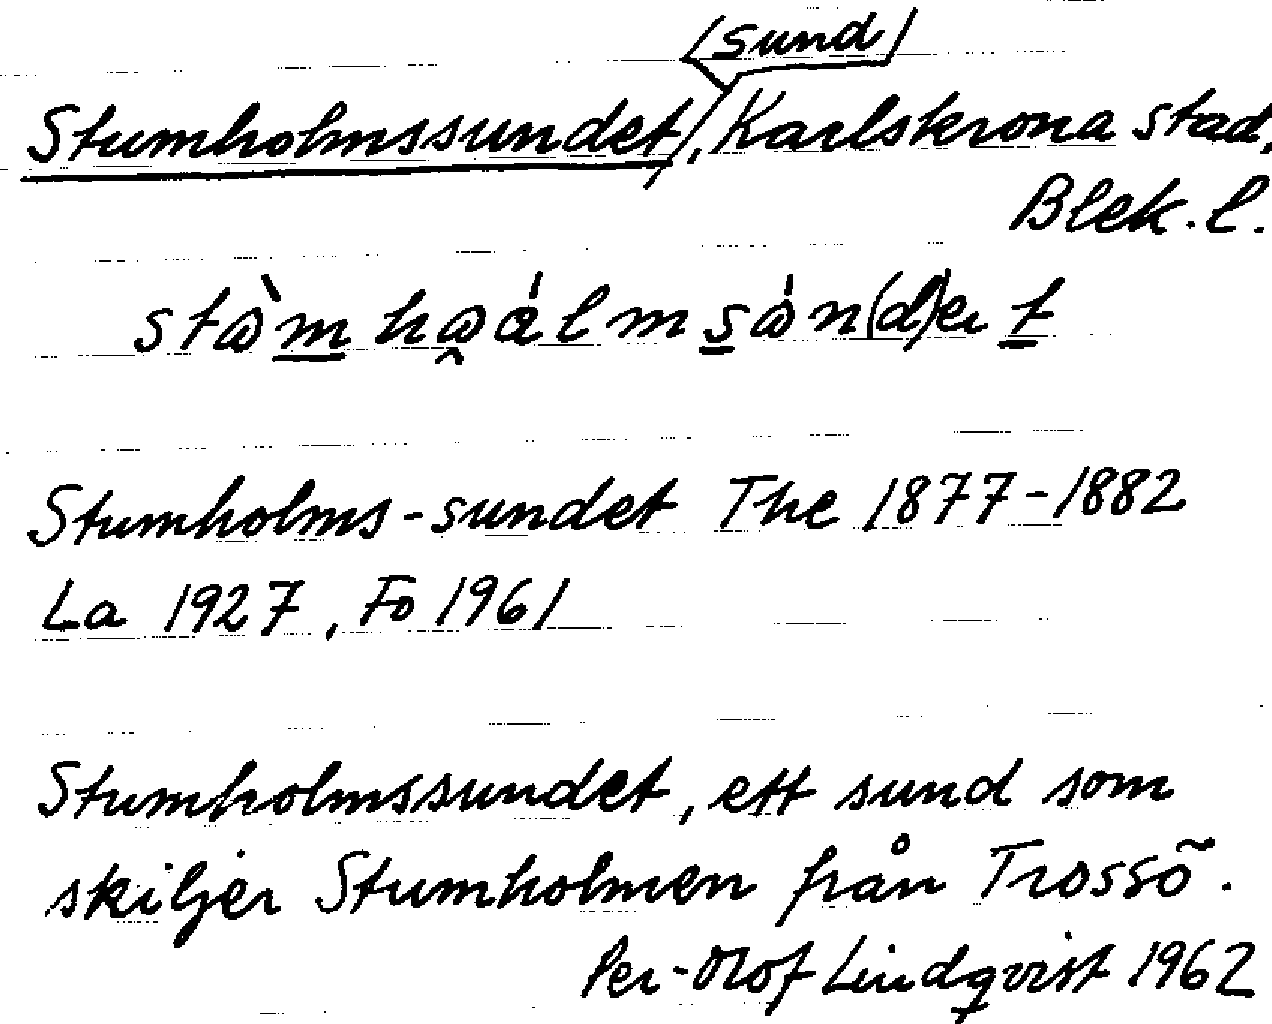 (sund)
Stumholmssundet/, Karlskrona stad,
Blek. l.
Stumholms-sundet The 1877-1882
La 1927, Fo 1961
Stumholmssundet, ett sund som
skiljer Stumholmen från Trossö.
Per-Olof Lindqvist 1962